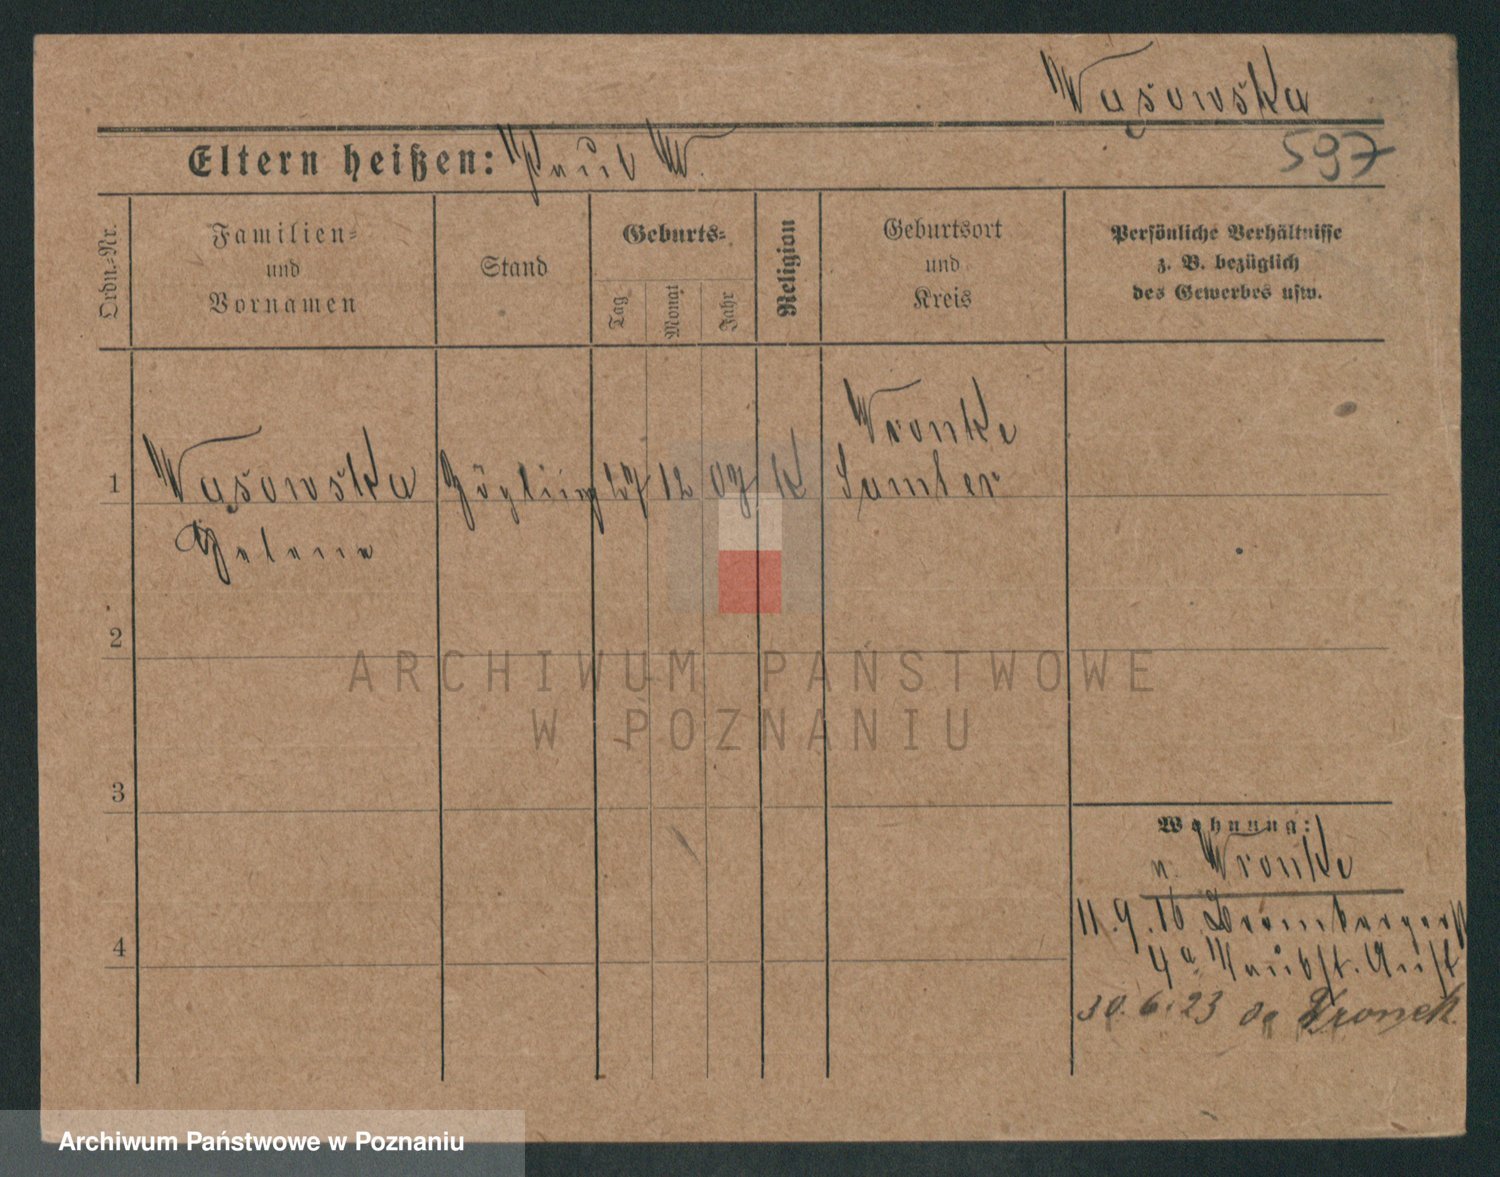 Wąsowska
597
Eltern heißen: Paul W.
Ordn.-Nr.
Familien-
und
Vornamen
Stand
Geburts-
Tag
Monat
Jahr
Religion
Geburtsort
und
Kreis
Persönliche Verhältnisse
z. B. bezüglich
des Gewerbes usw.
1
Wąsowska
Helene
Zögling
27
12
07
K
Wronke
Samter
2
3
4
Wohnung:
n. Wronke
11.9.16 Brombergerst
4a
30.6.23 do Wronek
ARCHIWUM PAŃSTWOWE
W POZNANIU
Archiwum Państwowe w Poznaniu